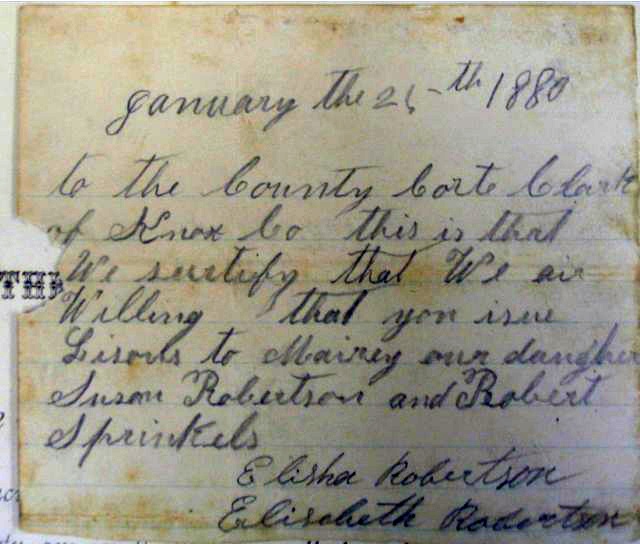 January the 25th 1880
to the County Corte Clark
of Knox Co this is that
We sertify that We air
THE
Willing that you isue
Lisons to Mairey our daugher
Susan Robertson and Robert
Sprinkels
Elisha Robertson
Elisabeth Robertson